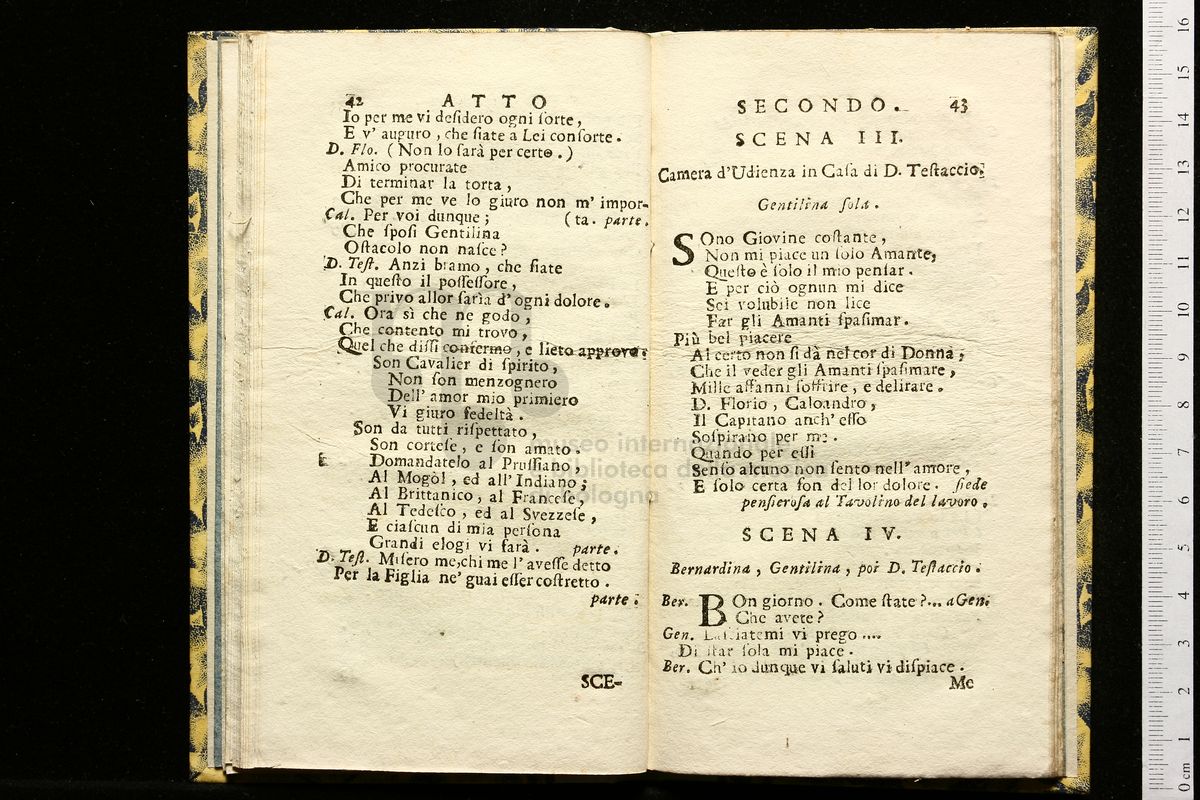 42 ATTO
Io per me vi deſidero ogni ſorte,
E v' auguro, che ſiate a Lei conſorte.
D. Flo. (Non lo ſarà per certo.)
Amico procurate
Di terminar la torta,
Che per me ve lo giuro non m' impor-
Cal. Per voi dunque; (ta. parte.
Che ſpoſi Gentilina
Oſtacolo non naſce?
D. Teſt. Anzi bramo, che ſiate
In queſto il poſſeſſore,
Che privo allor ſarìa d' ogni dolore.
Cal. Ora sì che ne godo,
Che contento mi trovo,
Quel che diſſi confermo, e lieto approvo:
Son Cavalier di ſpirito,
Non ſon menzognero
Dell' amor mio primiero
Vi giuro fedeltà.
Son da tutti riſpettato,
Son corteſe, e ſon amato.
Domandatelo al Pruſſiano,
Al Mogòl, ed all' Indiano;
Al Brittanico, al Franceſe,
Al Tedeſco, ed al Svezzeſe,
E ciaſcun di mia perſona
Grandi elogi vi farà. parte.
D. Teſt. Miſero me, chi me l' aveſſe detto
Per la Figlia ne' guai eſſer coſtretto.
parte.
SCE-
SECONDO. 43
SCENA III.
Camera d'Udienza in Caſa di D. Teſtaccio.
Gentilina ſola.
SOno Giovine coſtante,
Non mi piace un ſolo Amante,
Queſto è ſolo il mio penſar.
E per ciò ognun mi dice
Sei volubile non lice
Far gli Amanti ſpaſimar.
Più bel piacere
Al certo non ſi dà nel cor di Donna;
Che il veder gli Amanti ſpaſimare,
Mille affanni ſoffrire, e delirare.
D. Florio, Caloandro,
Il Capitano anch' eſſo
Soſpirano per me.
Quando per eſſi
Senſo alcuno non ſento nell' amore,
E ſolo certa ſon del lor dolore. ſiede
penſieroſa al Tavolino del lavoro.
SCENA IV.
Bernardina, Gentilina, poi D. Teſtaccio.
Ber. BOn giorno. Come ſtate?... a Gen.
Che avete?
Gen. Laſciatemi vi prego ....
Di ſtar ſola mi piace.
Ber. Ch' io dunque vi ſaluti vi diſpiace.
Me
museo internazionale
biblioteca della
bologna
0 cm 1 2 3 4 5 6 7 8 9 10 11 12 13 14 15 16